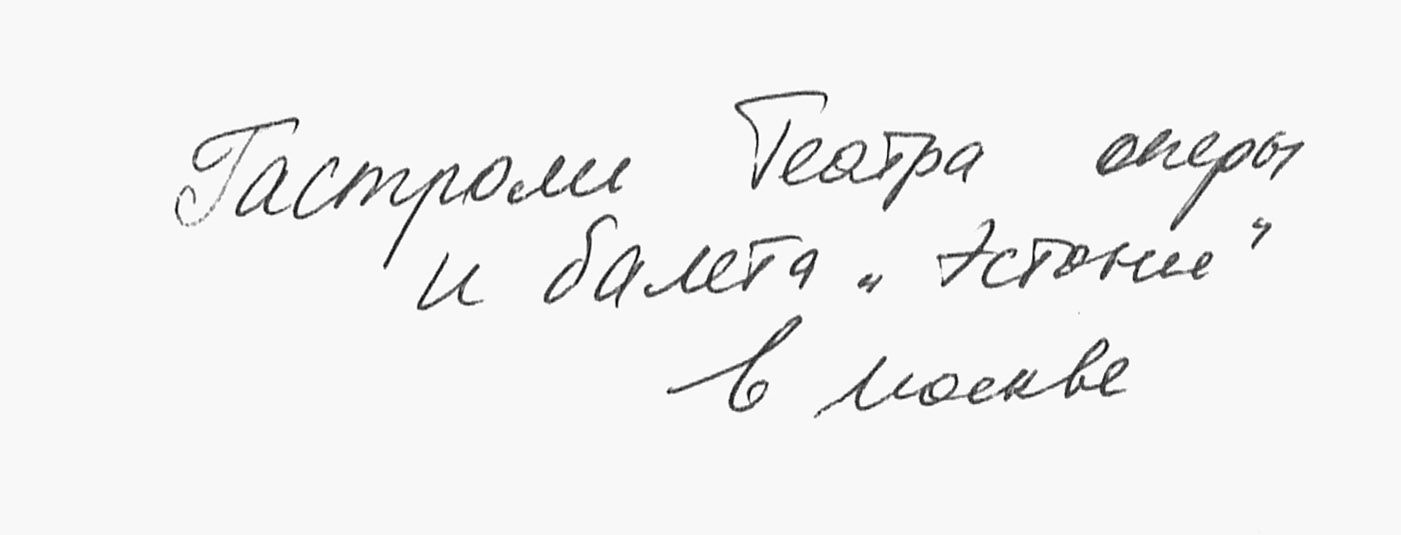 Гастроли Театра оперы
и балета „Эстонии"
в Москве